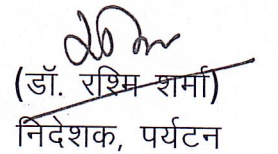 (डॉ. रश्मि शर्मा)
निदेशक, पर्यटन